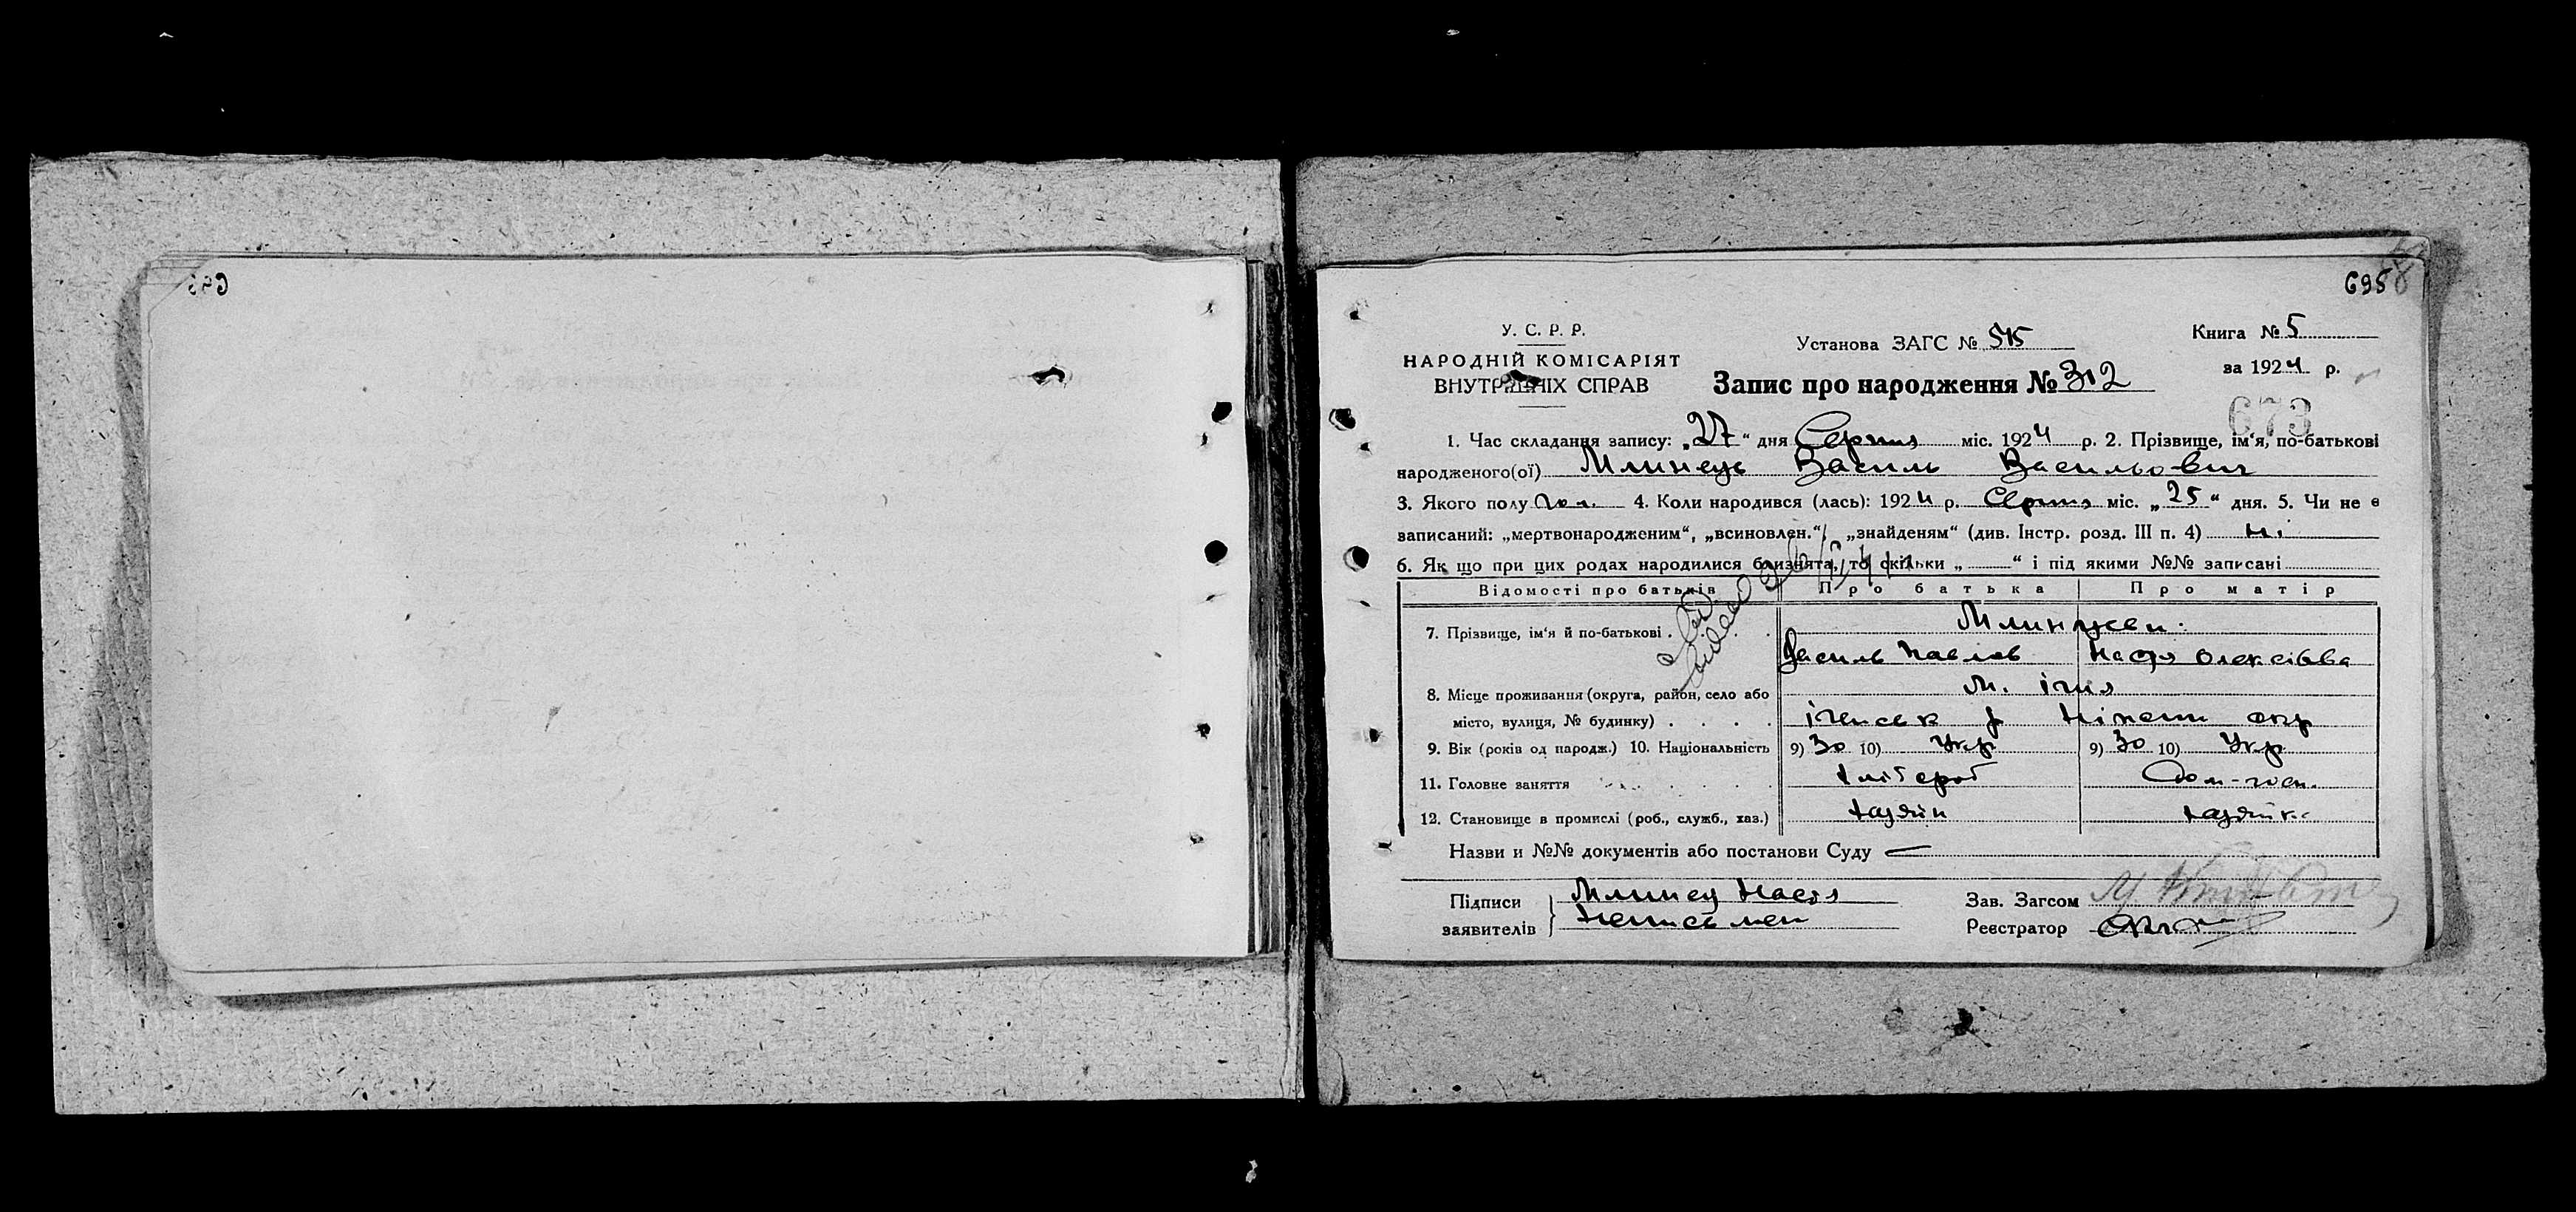 695
У. С. Р. Р.
НАРОДНІЙ КОМІСАРІЯТ
ВНУТРІШНІХ СПРАВ
Установа ЗАГС № 515
Запис про народження № 312
Книга № 5
за 1924 р.
673
1. Час складання запису: „27“ дня Серпня міс. 1924 р. 2. Прізвище, ім‘я, по-батькові
народженого(ої) Млинець Василь Васильович
3. Якого полу чол. 4. Коли народився (лась): 1924 р. Серпня міс. „25“ дня. 5. Чи не є
записаний: „мертвонародженим“, „всиновлен.“, „знайденям“ (див. Інстр. розд. III п. 4) ні
6. Як що при цих родах народилися близнята, то скільки „ “ і під якими №№ записані
Відомості про батьків Про батька Про матір
7. Прізвище, ім‘я й по-батькові . . . Млинцеви
Василь Павлов Настя Олексіївва
8. Місце проживання (округа, район, село або М. Ічня
місто, вулиця, № будинку) . . . . Іченськ р Ніженш окр
9. Вік (років од народж.) 10. Національність 9) 30 10) Укр 9) 30 10) Укр
11. Головне заняття хлібороб Дом-госп.
12. Становище в промислі (роб., служб., хаз.) хазяїн хазяйка
Назви и №№ документів або постанови Суду —
Підписи Млинец Настя Зав. Загсом
заявителів неписьмен Реєстратор